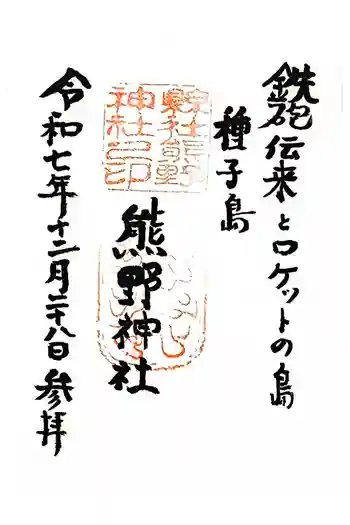 鉄砲伝来とロケットの島
種子島
熊野神社
令和七年十二月二十八日参拝
熊野
神社之印